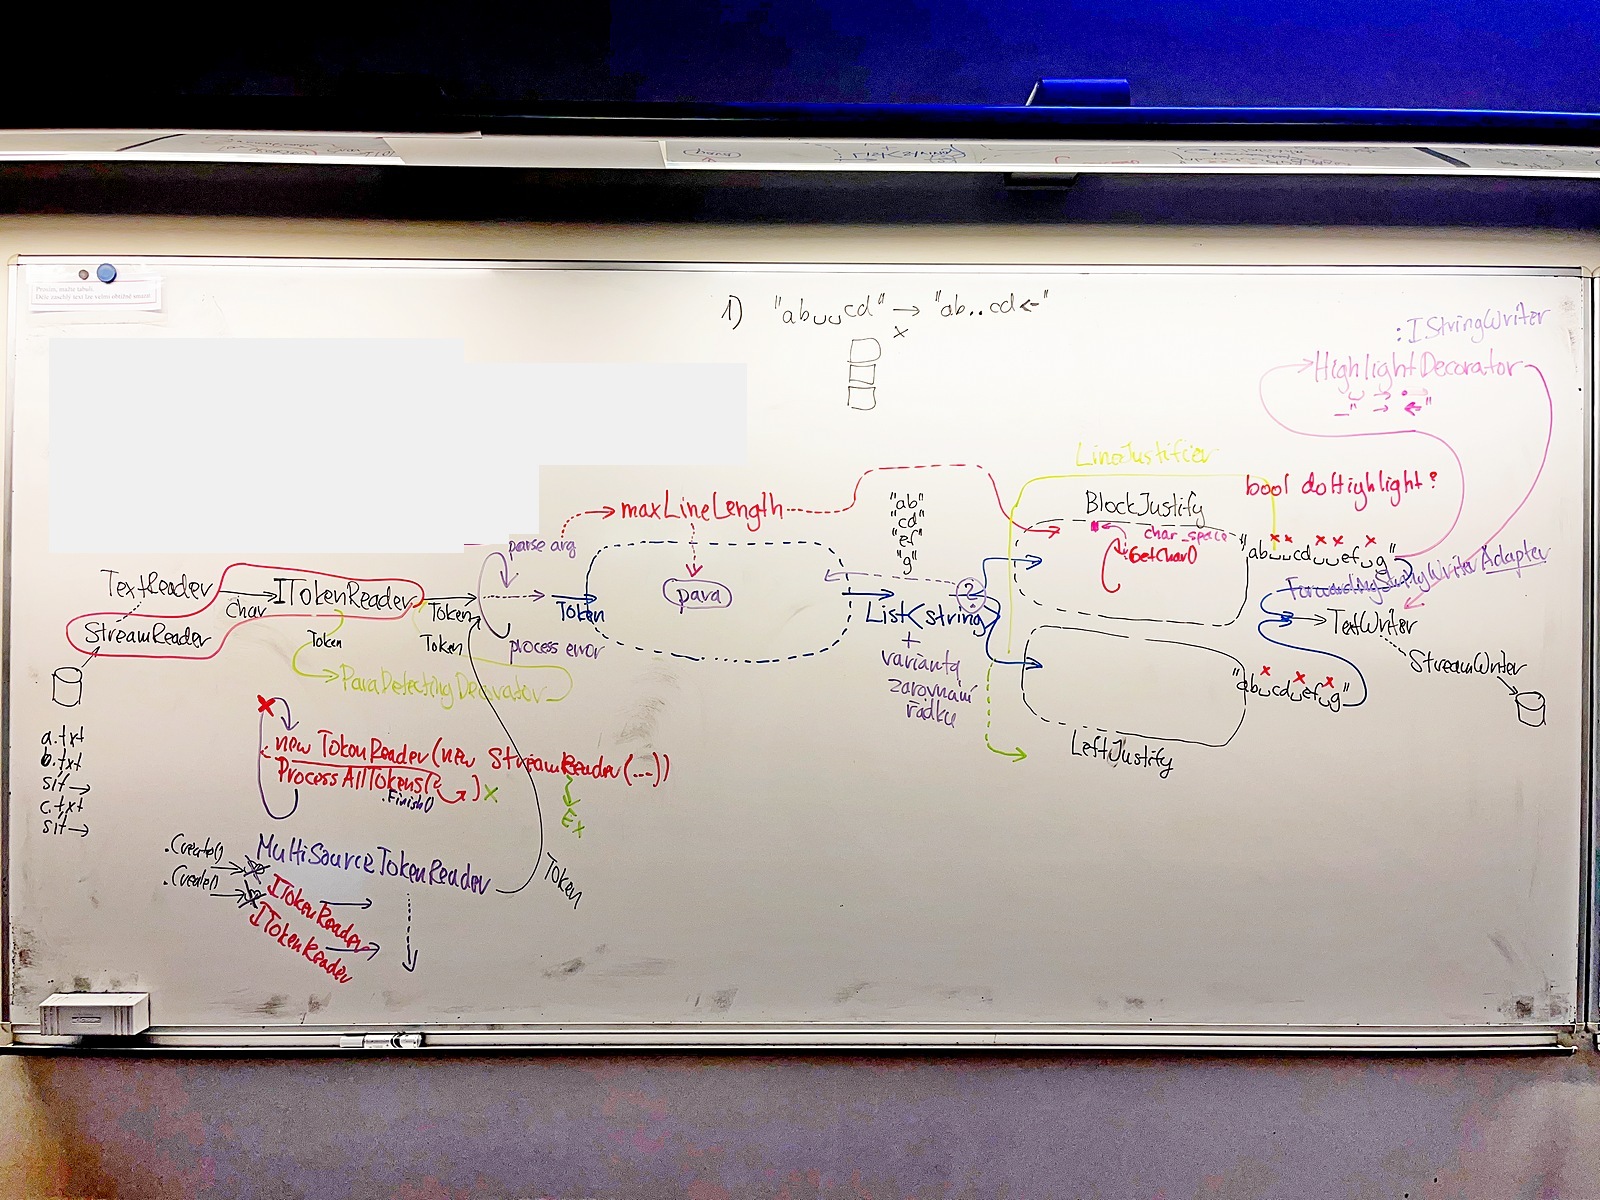 Prosím, mažte tabuli.
Déle zaschlý text lze velmi obtížně smazat!
1) "ab␣␣cd" → "ab..cd←"
x
: IStringWriter
HighlightDecorator
␣ → •
_" → ←"
LineJustifier
bool doHighlight?
maxLineLength
"ab"
"cd"
"ef"
"g"
BlockJustify
char_space
GetChar()
"ab␣␣cd␣␣ef␣g"
parse arg
TextReader
char
ITokenReader
Token
Token
para
List<string>
+
varianta
zarovnání
řádku
?
ForwardingStringWriterAdapter
TextWriter
StreamWriter
StreamReader
Token
Token
process error
ParaDetectingDecorator
"ab␣cd␣ef␣g"
LeftJustify
a.txt
b.txt
sít →
c.txt
sít →
new TokenReader(new StreamReader(...))
ProcessAllTokens( ) x
.Finish()
Ex
.Create()
.Create()
MultiSourceTokenReader
Token
ITokenReader
ITokenReader